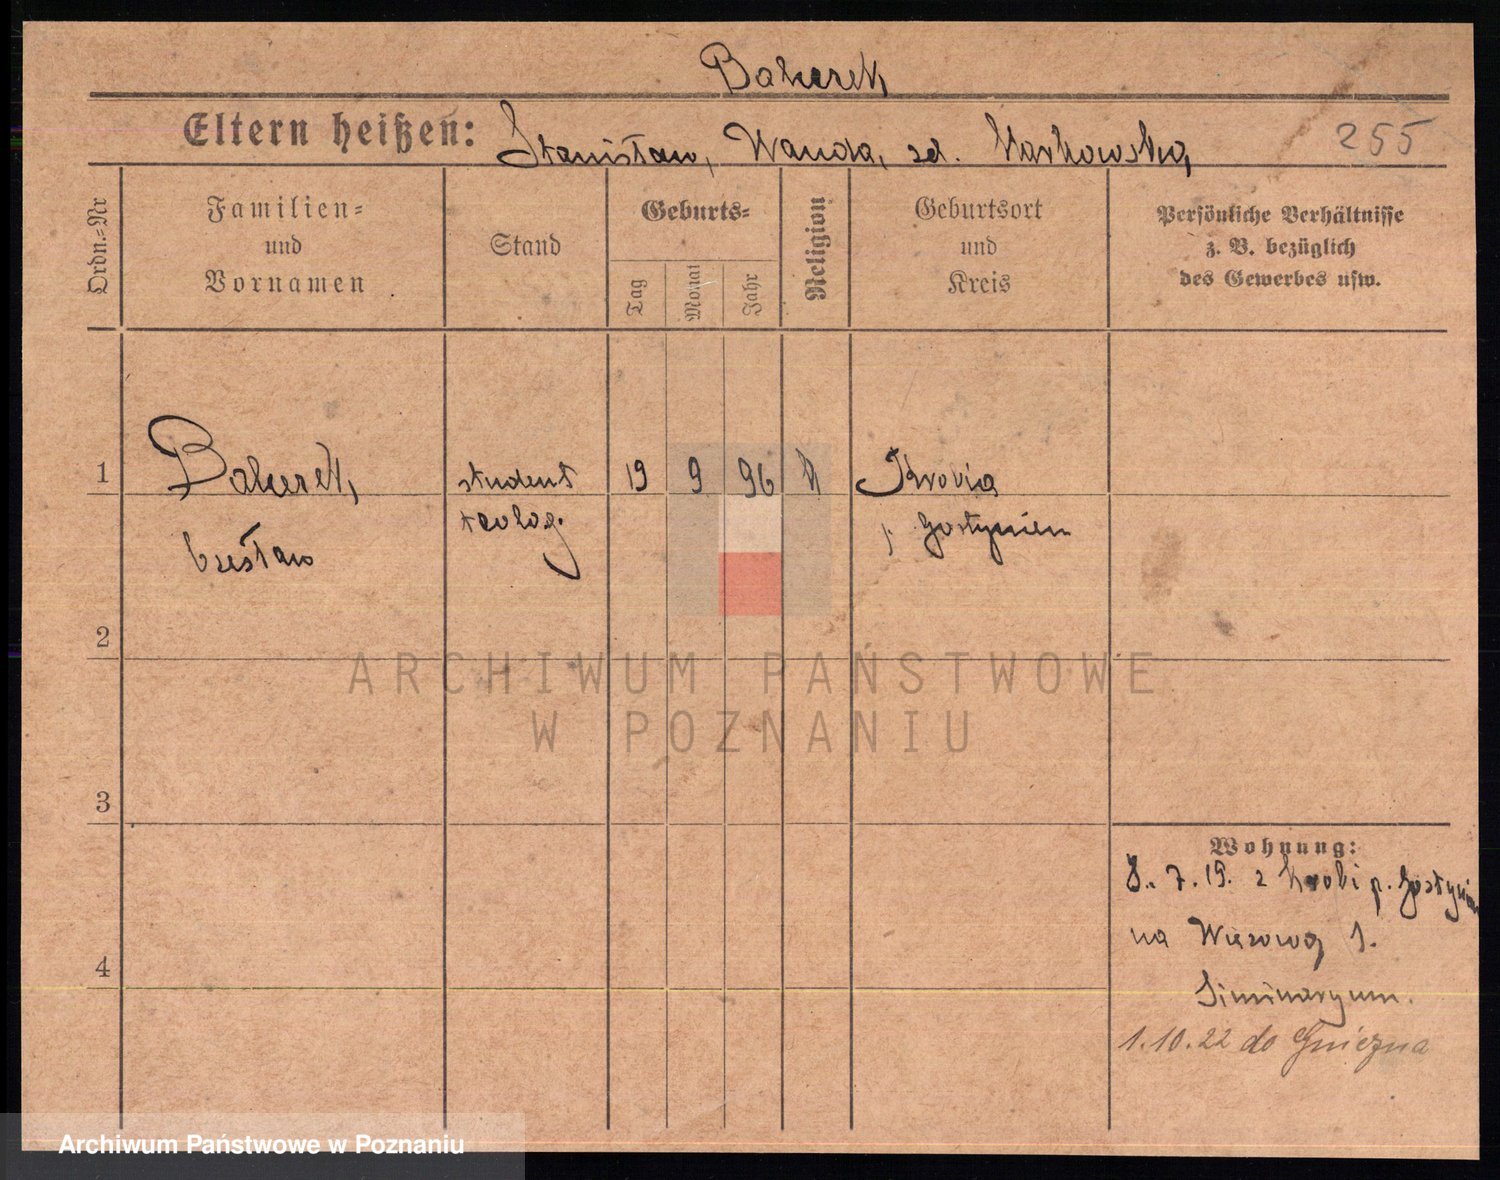 Eltern heißen: Stanisław, Wanda,
255
Ordn.=Nr
Familien=
und
Vornamen
Stand
Geburts=
Tag
Monat
Jahr
Religion
Geburtsort
und
Kreis
Persönliche Verhältnisse
z. B. bezüglich
des Gewerbes usw.
1
student
19
9
96
teolog.
Czesław
2
3
4
Wohnung:
8. 7. 19. z Krobi p. Gostyniem
na Wieżową 1.
1.10.22 do Gniezna
ARCHIWUM PAŃSTWOWE
W POZNANIU
Archiwum Państwowe w Poznaniu